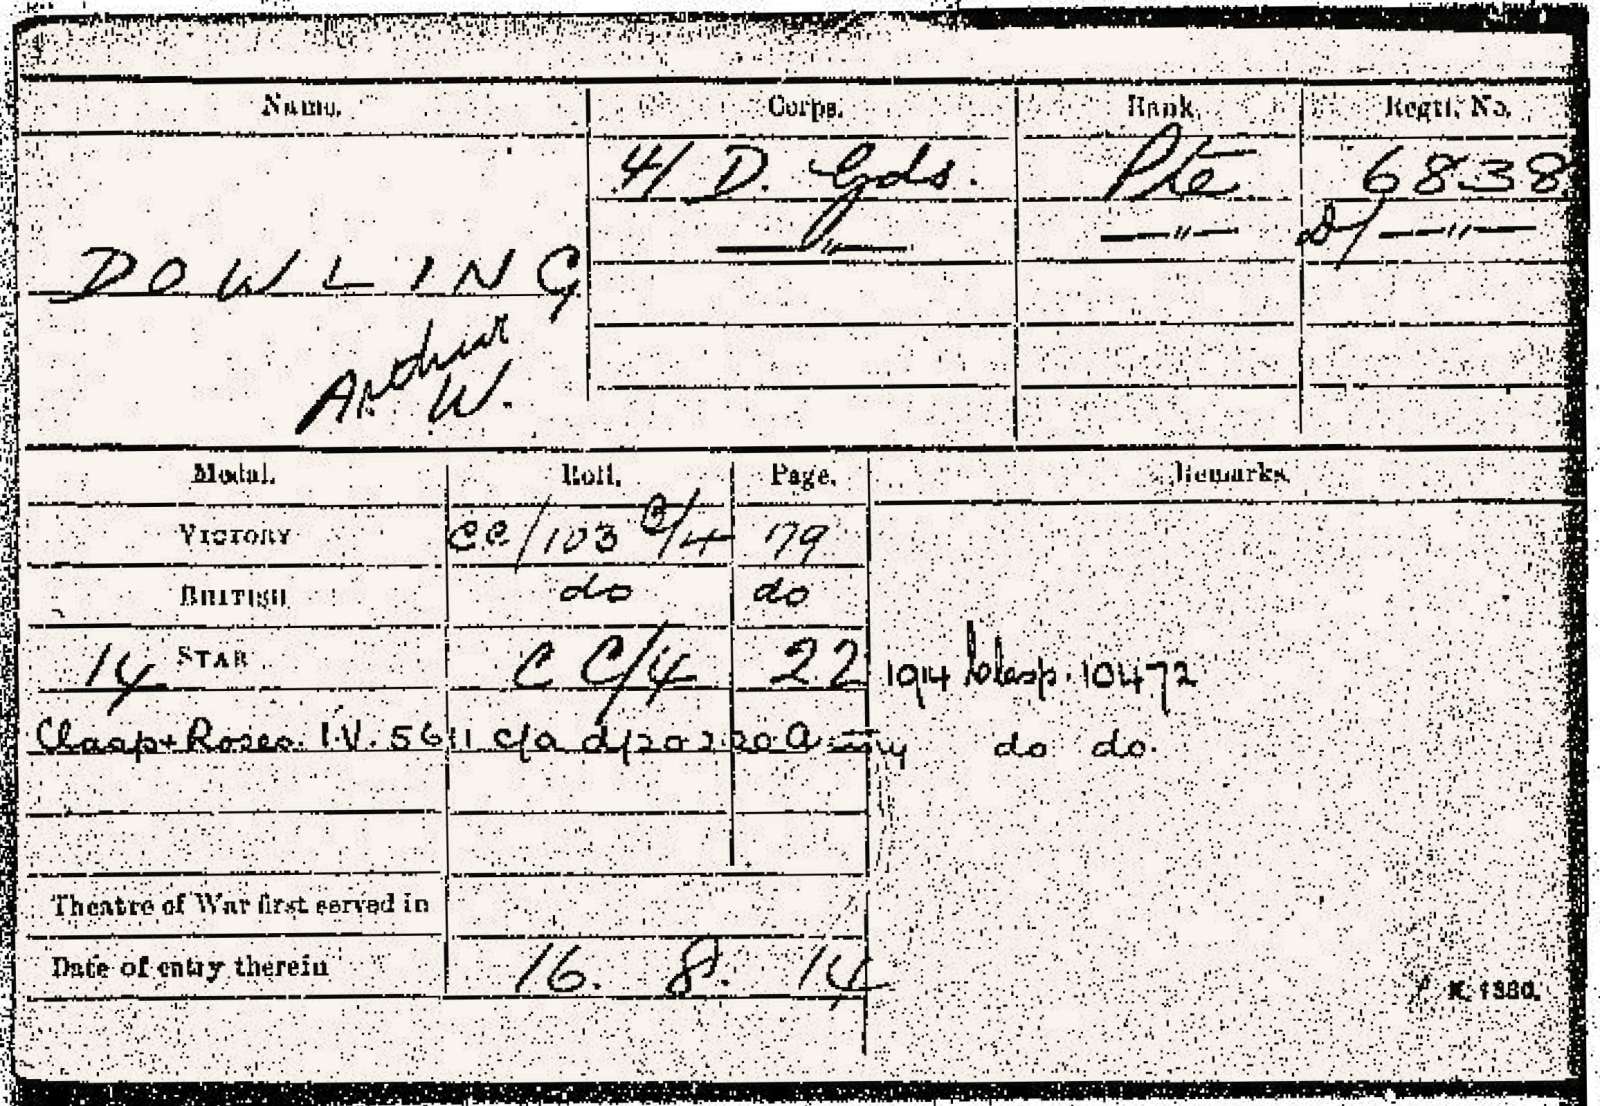 Name. Corps. Rank. Regtl. No.
4/ D. Gds. Pte 6838
—"— —"— D/ —"—
DOWLING
Arthur
W.
Medal. Roll. Page. Remarks.
VICTORY CC/103 B/4 79
BRITISH do do
14 STAR C C/4 22 1914 Clasp. 10472
Clasp + Roses. I.V. 5611 c/a d/20220 do do.
Theatre of War first served in
Date of entry therein 16. 8. 14
K. 1380.